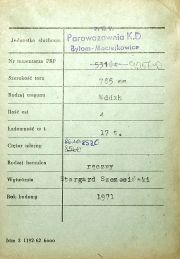 Jednostka służbowa
Parowozownia K.D.
Bytom-Maciejkowice
Nr inwentarza PKP
Szerokość toru 785 mm
Rodzaj wagonu Wddxh
Ilość osi 4
Ładowność w t 17 t.
Ciężar własny 8520
Rodzaj hamulca ręczny
Wytwórnia Stargard Szczeciński
Rok budowy 1971